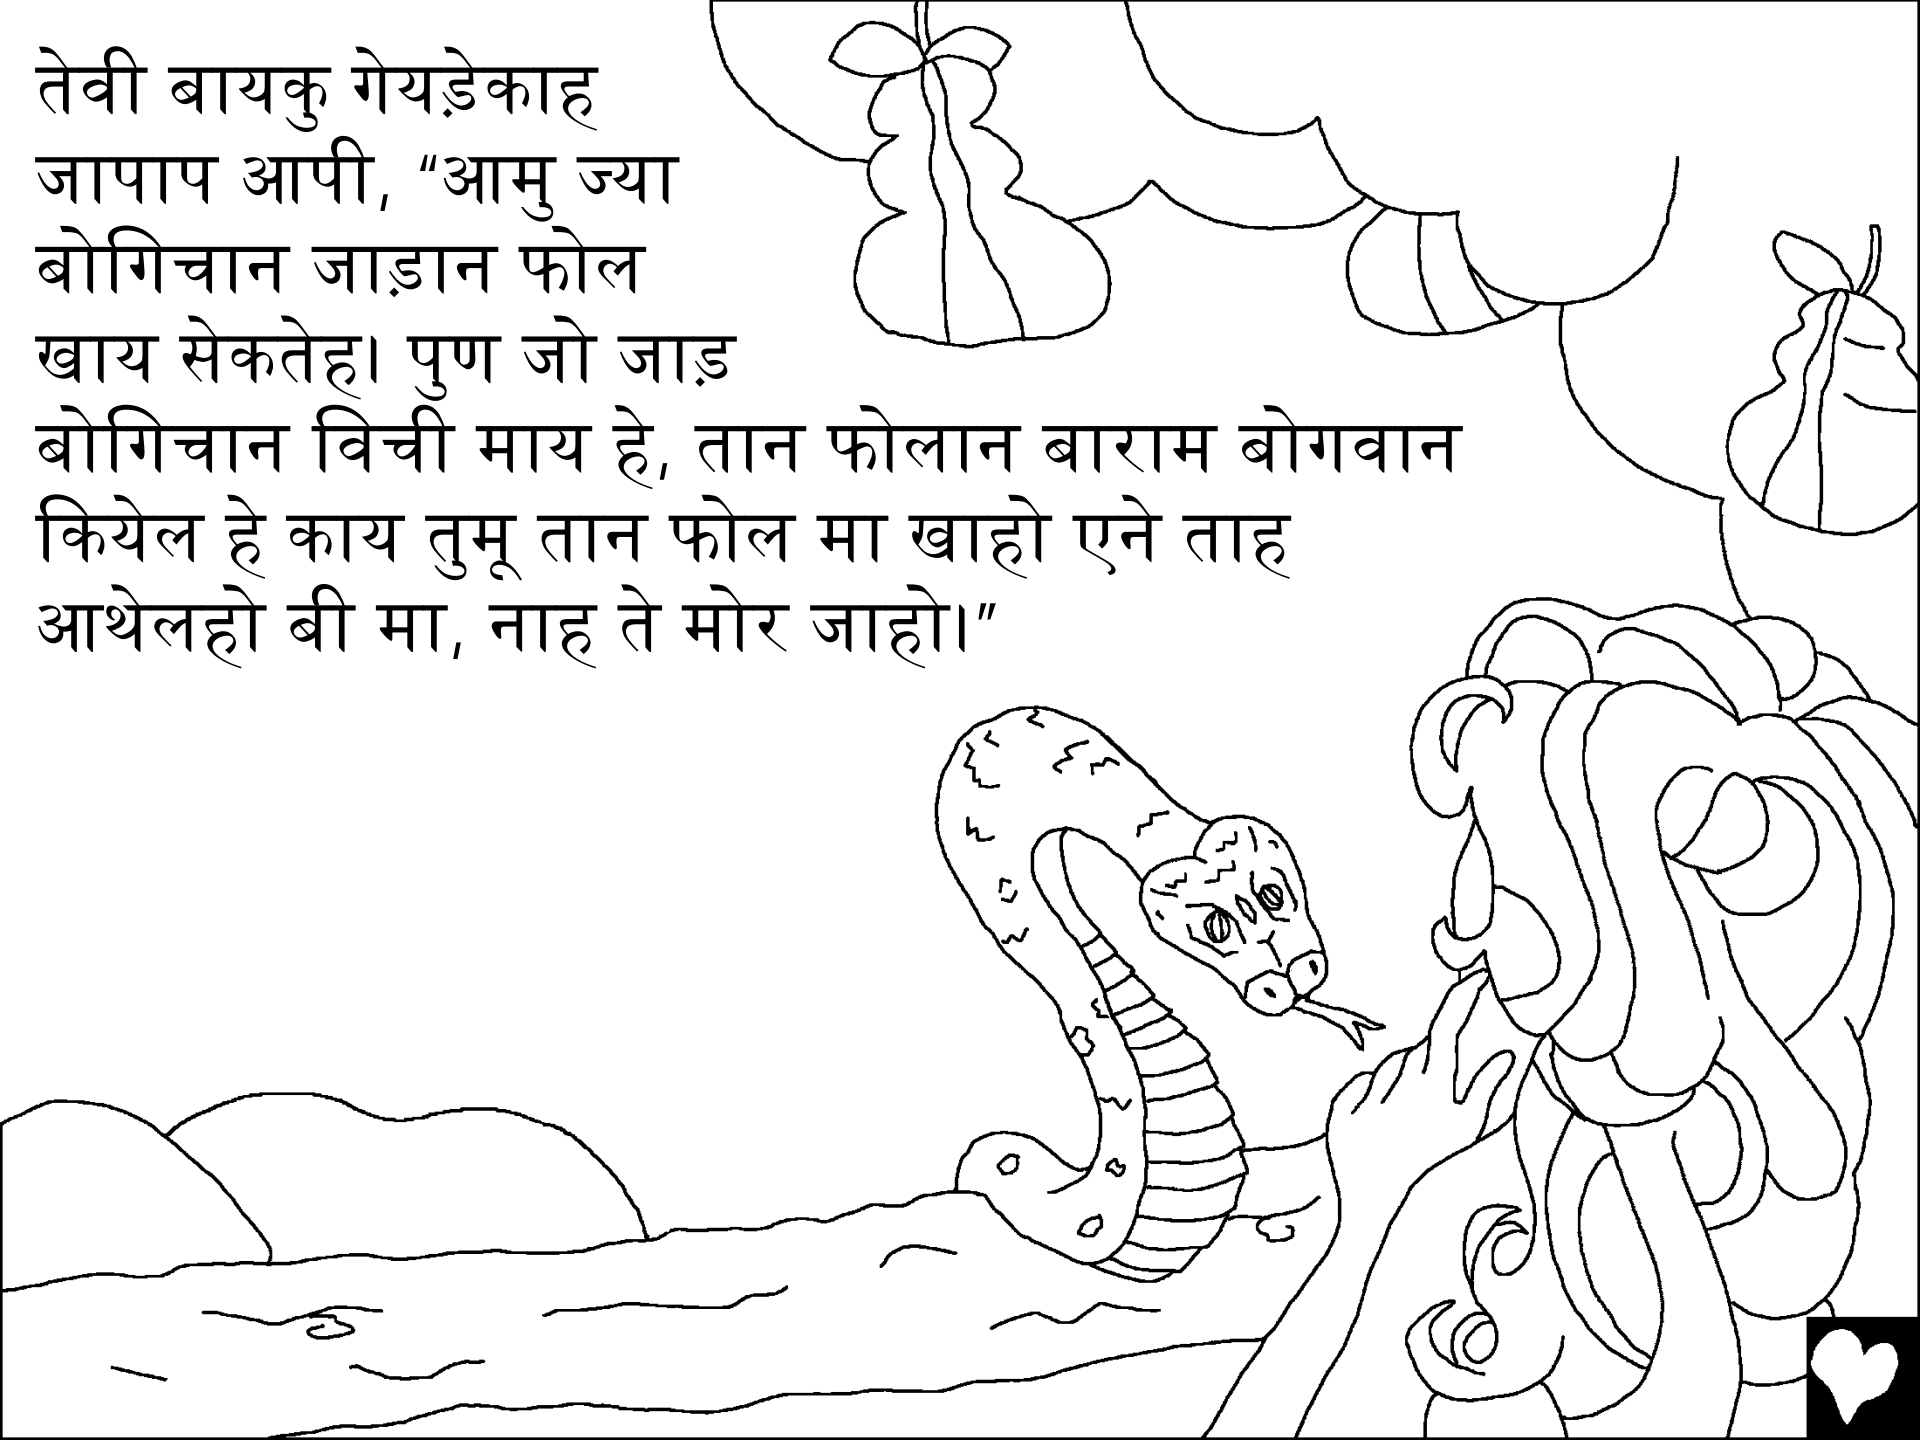 तेवी बायकु गेयड़ेकाह
जापाप आपी, “आमु ज्या
बोगिचान जाड़ान फोल
खाय सेकतेह। पुण जो जाड़
बोगिचान विची माय हे, तान फोलान बाराम बोगवान
कियेल हे काय तुमू तान फोल मा खाहो एने ताह
आथेलहो बी मा, नाह ते मोर जाहो।”